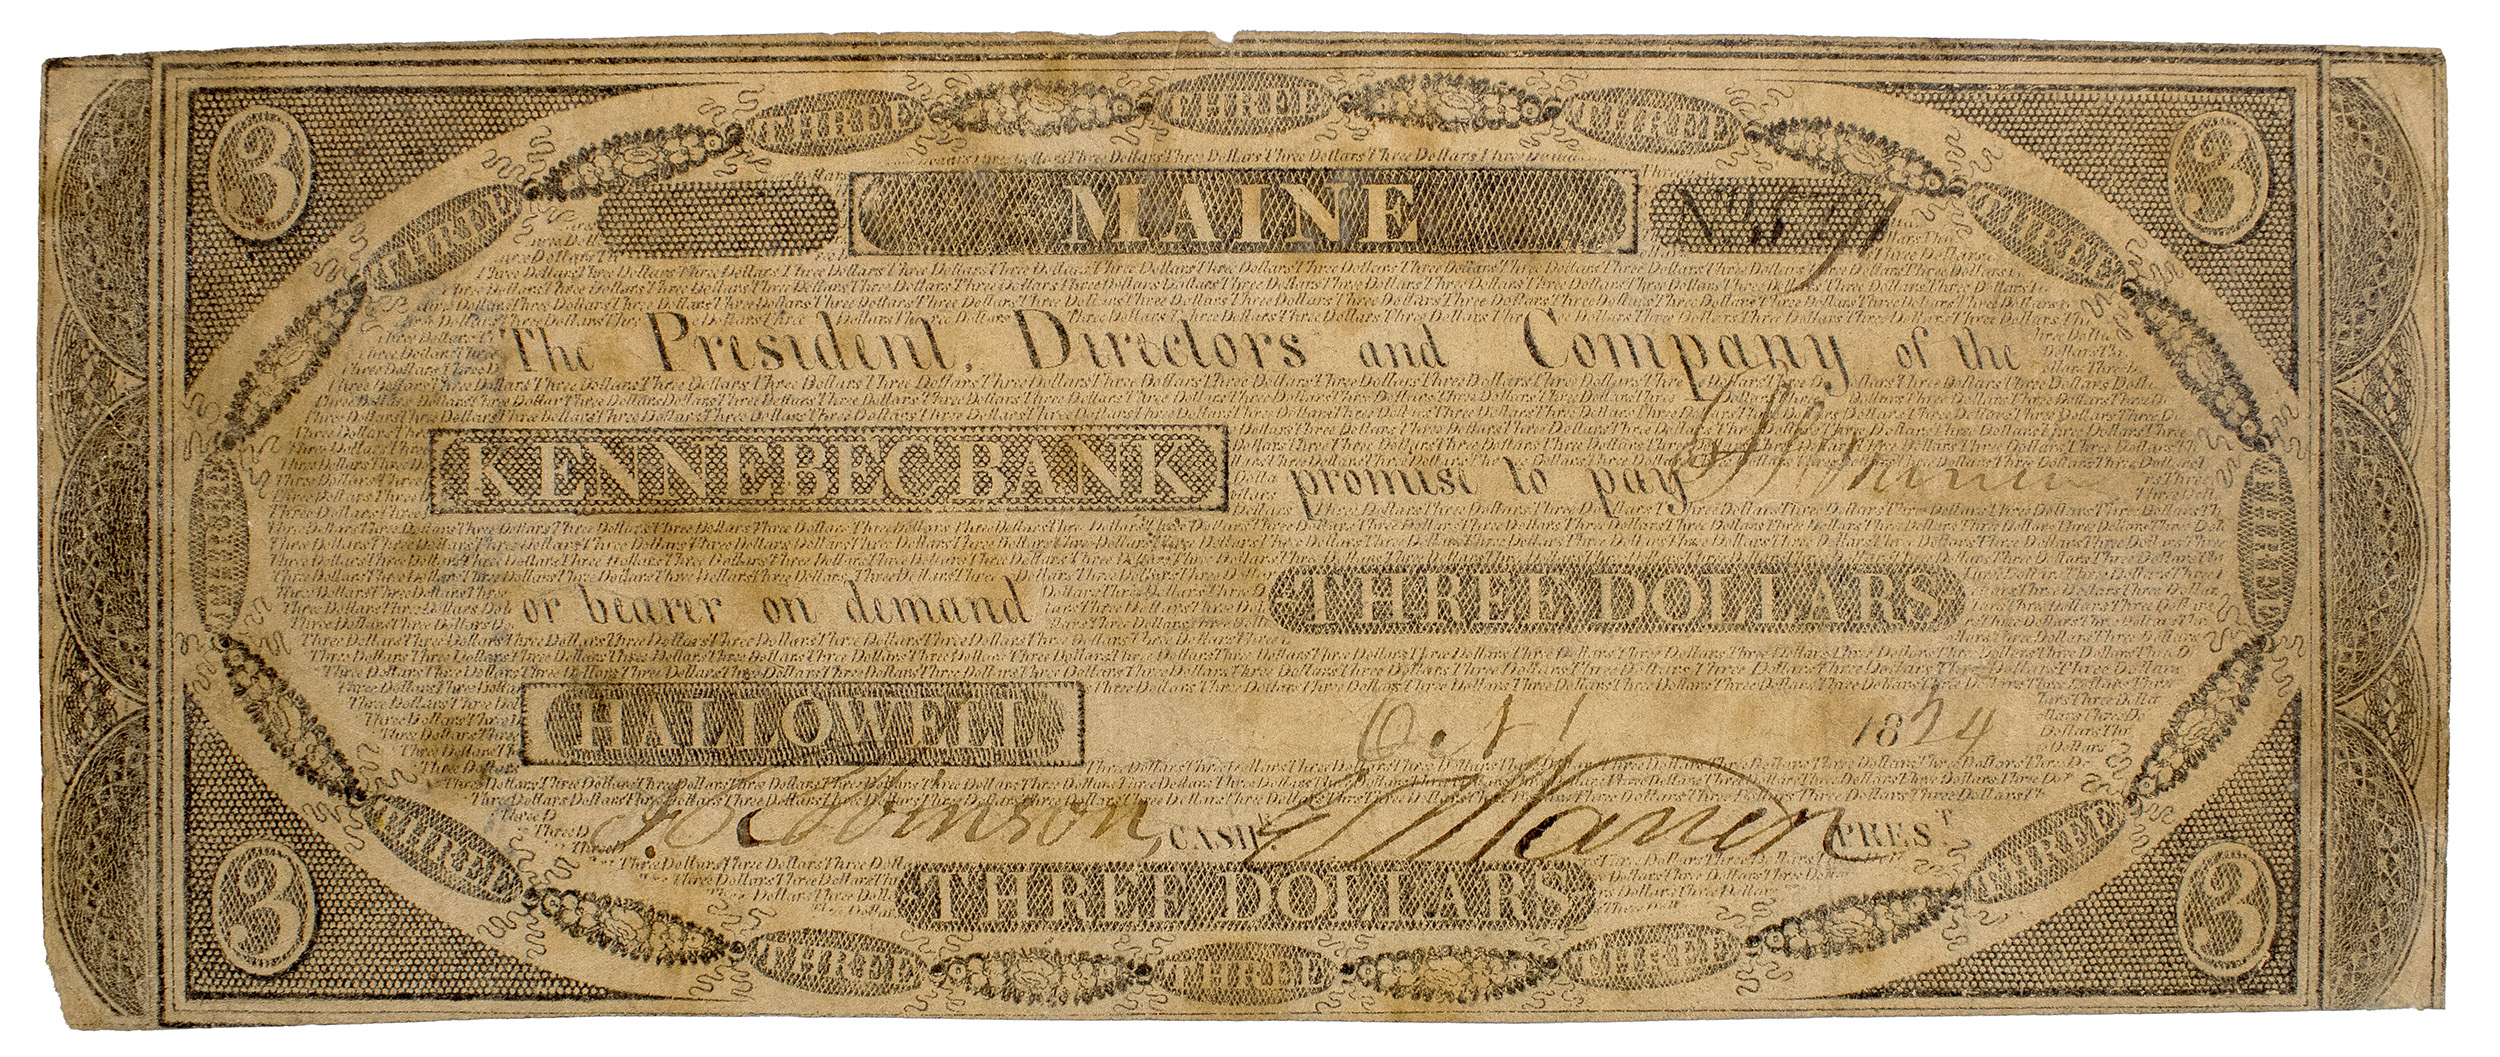 3 THREE THREE THREE 3
THREE THREE
MAINE No.
The President, Directors and Company of the
KENNEBEC BANK promise to pay
THREE THREE
or bearer on demand THREE DOLLARS
HALLOWELL Oct 1 1824
Robinson, CASHR. Warren PREST.
THREE THREE
THREE DOLLARS
3 THREE THREE THREE 3